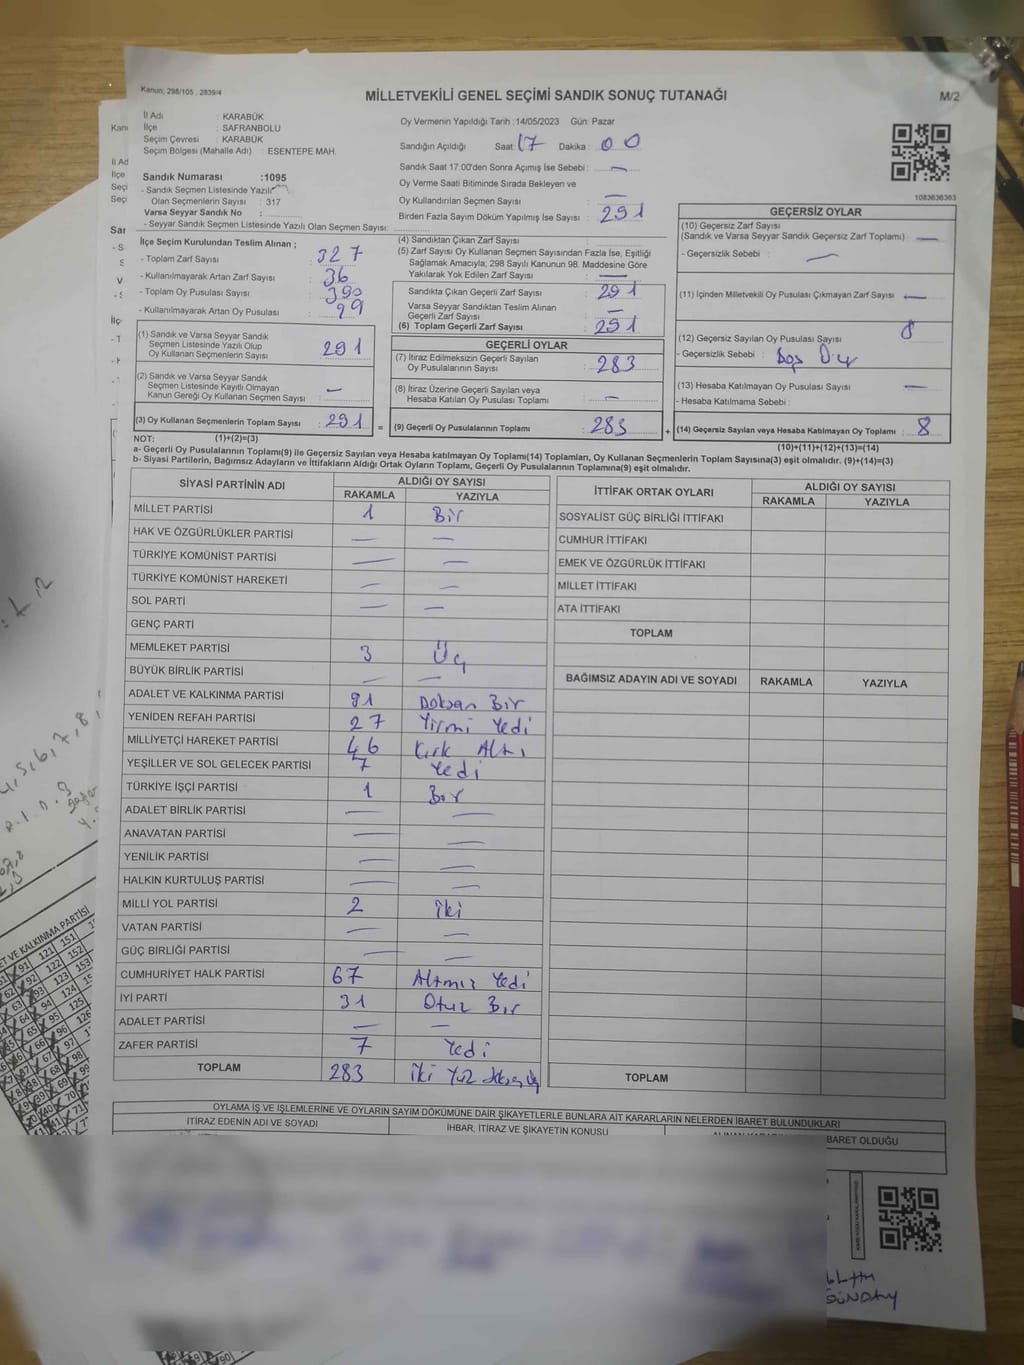 Kanun; 298/105 , 2839/4
MİLLETVEKİLİ GENEL SEÇİMİ SANDIK SONUÇ TUTANAĞI
M/2
İl Adı : KARABÜK
İlçe : SAFRANBOLU
Seçim Çevresi : KARABÜK
Seçim Bölgesi (Mahalle Adı) : ESENTEPE MAH.
Oy Vermenin Yapıldığı Tarih :14/05/2023 Gün: Pazar
Sandığın Açıldığı Saat: 17 Dakika : 00
Sandık Saat 17:00'den Sonra Açımış İse Sebebi : —
Oy Verme Saati Bitiminde Sırada Bekleyen ve
Oy Kullandırılan Seçmen Sayısı : —
Birden Fazla Sayım Döküm Yapılmış İse Sayısı : 291
1083636363
Sandık Numarası :1095
- Sandık Seçmen Listesinde Yazılı
Olan Seçmenlerin Sayısı : 317
Varsa Seyyar Sandık No :
- Seyyar Sandık Seçmen Listesinde Yazılı Olan Seçmen Sayısı:
İlçe Seçim Kurulundan Teslim Alınan ;
- Toplam Zarf Sayısı : 327
- Kullanılmayarak Artan Zarf Sayısı : 36
- Toplam Oy Pusulası Sayısı : 390
- Kullanılmayarak Artan Oy Pusulası : 99
(1) Sandık ve Varsa Seyyar Sandık
Seçmen Listesinde Yazılı Olup
Oy Kullanan Seçmenlerin Sayısı : 291
(2) Sandık ve Varsa Seyyar Sandık
Seçmen Listesinde Kayıtlı Olmayan
Kanun Gereği Oy Kullanan Seçmen Sayısı : —
(3) Oy Kullanan Seçmenlerin Toplam Sayısı : 291 =
(4) Sandıktan Çıkan Zarf Sayısı :
(5) Zarf Sayısı Oy Kullanan Seçmen Sayısından Fazla İse, Eşitliği
Sağlamak Amacıyla; 298 Sayılı Kanunun 98. Maddesine Göre
Yakılarak Yok Edilen Zarf Sayısı : —
Sandıkta Çıkan Geçerli Zarf Sayısı : 291
Varsa Seyyar Sandıktan Teslim Alınan
Geçerli Zarf Sayısı : —
(6) Toplam Geçerli Zarf Sayısı : 291
GEÇERLİ OYLAR
(7) İtiraz Edilmeksizin Geçerli Sayılan
Oy Pusulalarının Sayısı : 283
(8) İtiraz Üzerine Geçerli Sayılan veya
Hesaba Katılan Oy Pusulası Toplamı : —
(9) Geçerli Oy Pusulalarının Toplamı : 283 +
GEÇERSİZ OYLAR
(10) Geçersiz Zarf Sayısı
(Sandık ve Varsa Seyyar Sandık Geçersiz Zarf Toplamı) : —
- Geçersizlik Sebebi : —
(11) İçinden Milletvekili Oy Pusulası Çıkmayan Zarf Sayısı : —
(12) Geçersiz Sayılan Oy Pusulası Sayısı : 8
- Geçersizlik Sebebi : Boş
(13) Hesaba Katılmayan Oy Pusulası Sayısı : —
- Hesaba Katılmama Sebebi :
(14) Geçersiz Sayılan veya Hesaba Katılmayan Oy Toplamı : 8
NOT: (1)+(2)=(3)
(10)+(11)+(12)+(13)=(14)
a- Geçerli Oy Pusulalarının Toplamı(9) ile Geçersiz Sayılan veya Hesaba katılmayan Oy Toplamı(14) Toplamları, Oy Kullanan Seçmenlerin Toplam Sayısına(3) eşit olmalıdır. (9)+(14)=(3)
b- Siyasi Partilerin, Bağımsız Adayların ve İttifakların Aldığı Ortak Oyların Toplamı, Geçerli Oy Pusulalarının Toplamına(9) eşit olmalıdır.
SİYASİ PARTİNİN ADI ALDIĞI OY SAYISI
RAKAMLA YAZIYLA
MİLLET PARTİSİ 1 Bir
HAK VE ÖZGÜRLÜKLER PARTİSİ — —
TÜRKİYE KOMÜNİST PARTİSİ — —
TÜRKİYE KOMÜNİST HAREKETİ — —
SOL PARTİ — —
GENÇ PARTİ
MEMLEKET PARTİSİ 3 Üç
BÜYÜK BİRLİK PARTİSİ — —
ADALET VE KALKINMA PARTİSİ 91 Doksan Bir
YENİDEN REFAH PARTİSİ 27 Yirmi Yedi
MİLLİYETÇİ HAREKET PARTİSİ 46 Kırk Altı
YEŞİLLER VE SOL GELECEK PARTİSİ 7 Yedi
TÜRKİYE İŞÇİ PARTİSİ 1 Bir
ADALET BİRLİK PARTİSİ — —
ANAVATAN PARTİSİ — —
YENİLİK PARTİSİ — —
HALKIN KURTULUŞ PARTİSİ — —
MİLLİ YOL PARTİSİ 2 İki
VATAN PARTİSİ — —
GÜÇ BİRLİĞİ PARTİSİ — —
CUMHURİYET HALK PARTİSİ 67 Altmış Yedi
İYİ PARTİ 31 Otuz Bir
ADALET PARTİSİ — —
ZAFER PARTİSİ 7 Yedi
TOPLAM 283 İki Yüz Seksen Üç
İTTİFAK ORTAK OYLARI ALDIĞI OY SAYISI
RAKAMLA YAZIYLA
SOSYALİST GÜÇ BİRLİĞİ İTTİFAKI
CUMHUR İTTİFAKI
EMEK VE ÖZGÜRLÜK İTTİFAKI
MİLLET İTTİFAKI
ATA İTTİFAKI
TOPLAM
BAĞIMSIZ ADAYIN ADI VE SOYADI RAKAMLA YAZIYLA
TOPLAM
OYLAMA İŞ VE İŞLEMLERİNE VE OYLARIN SAYIM DÖKÜMÜNE DAİR ŞİKAYETLERLE BUNLARA AİT KARARLARIN NELERDEN İBARET BULUNDUKLARI
İTİRAZ EDENİN ADI VE SOYADI
İHBAR, İTİRAZ VE ŞİKAYETİN KONUSU
BARET OLDUĞU